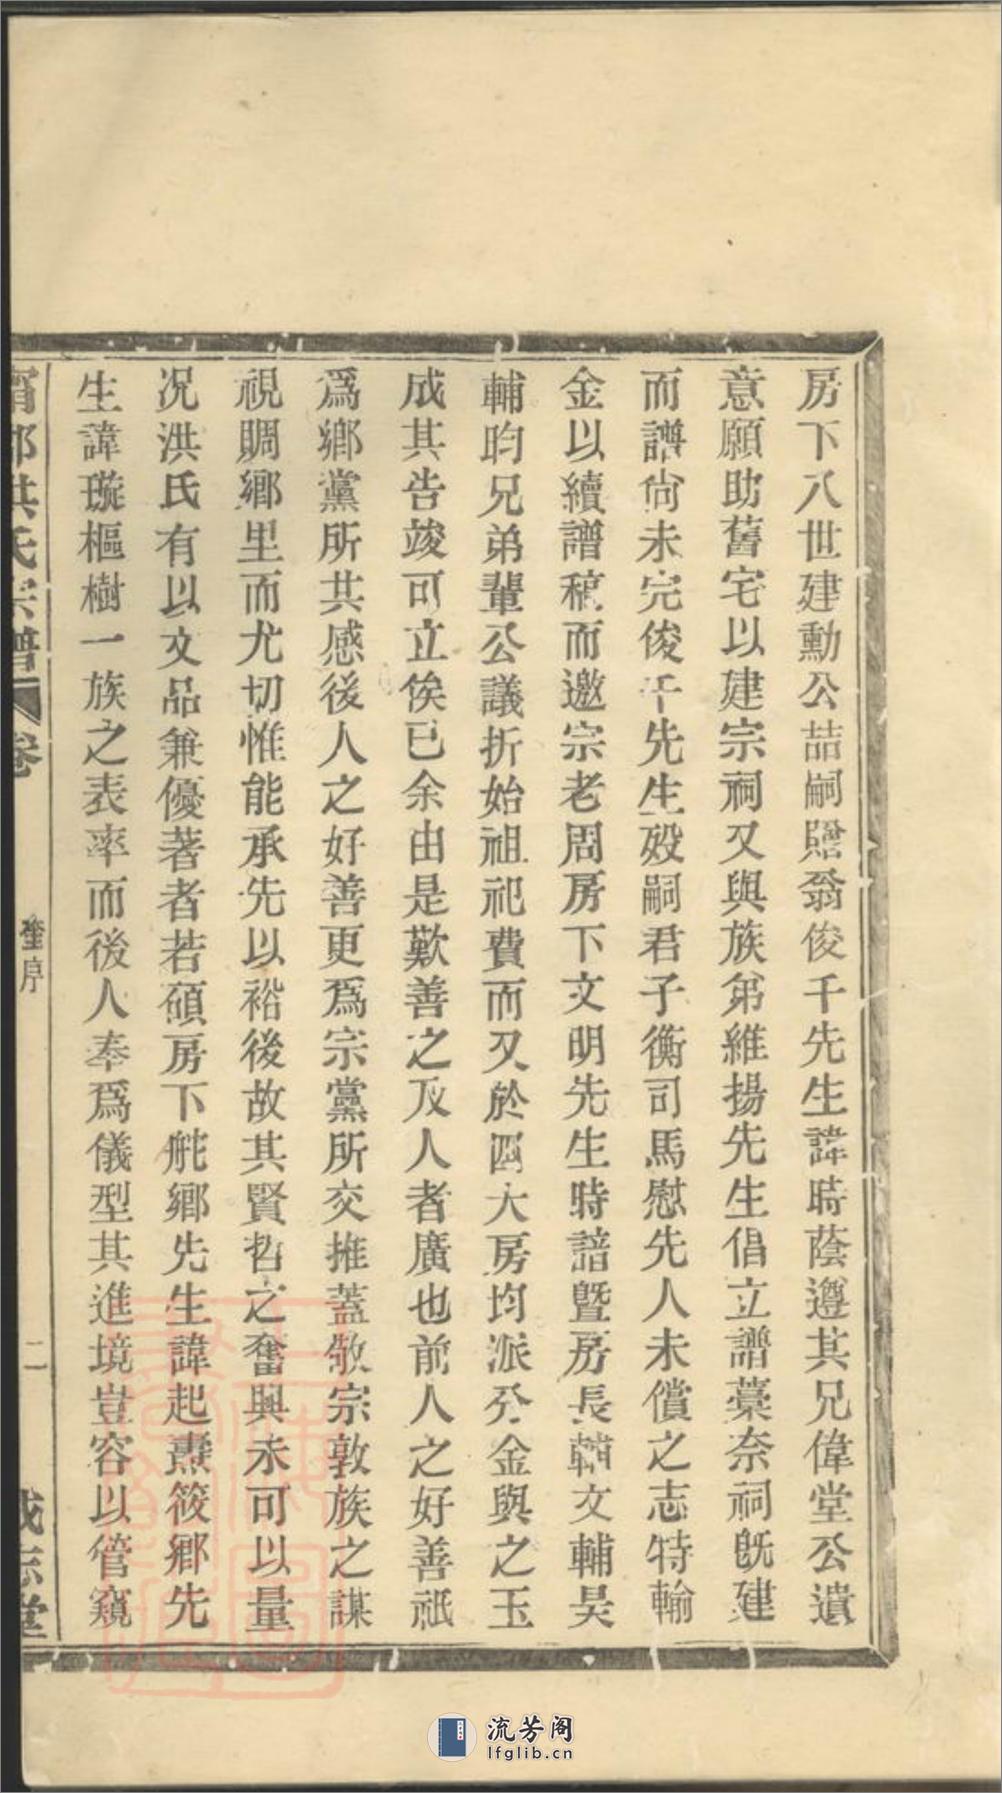 房下八世建勳公喆嗣贈翁俊千先生諱時蔭遵其兄偉堂公遺
意願助舊宅以建宗祠又與族弟維揚先生倡立譜藁奈祠旣建
而譜尙未完俊千先生歿嗣君子衡司馬慰先人未償之志特輸
金以續譜稿而邀宗老周房下文明先生時諳暨房長輔文輔吴
輔昀兄弟輩公議折始祖祀費而又於四大房均派分金與之玉
成其告竣可立俟已余由是歎善之及人者廣也前人之好善祇
爲鄉黨所共感後人之好善更爲宗黨所交推蓋敬宗敦族之謀
視賙鄉里而尤切惟能承先以裕後故其賢哲之奮興未可以量
况洪氏有以文品兼優著者若碩房下舵鄉先生諱起燾筱鄉先
生諱璇樞樹一族之表率而後人奉爲儀型其進境豈容以管窺
甯鄉洪氏宗譜 卷
序
二
成志堂
流芳阁
lfglib.cn